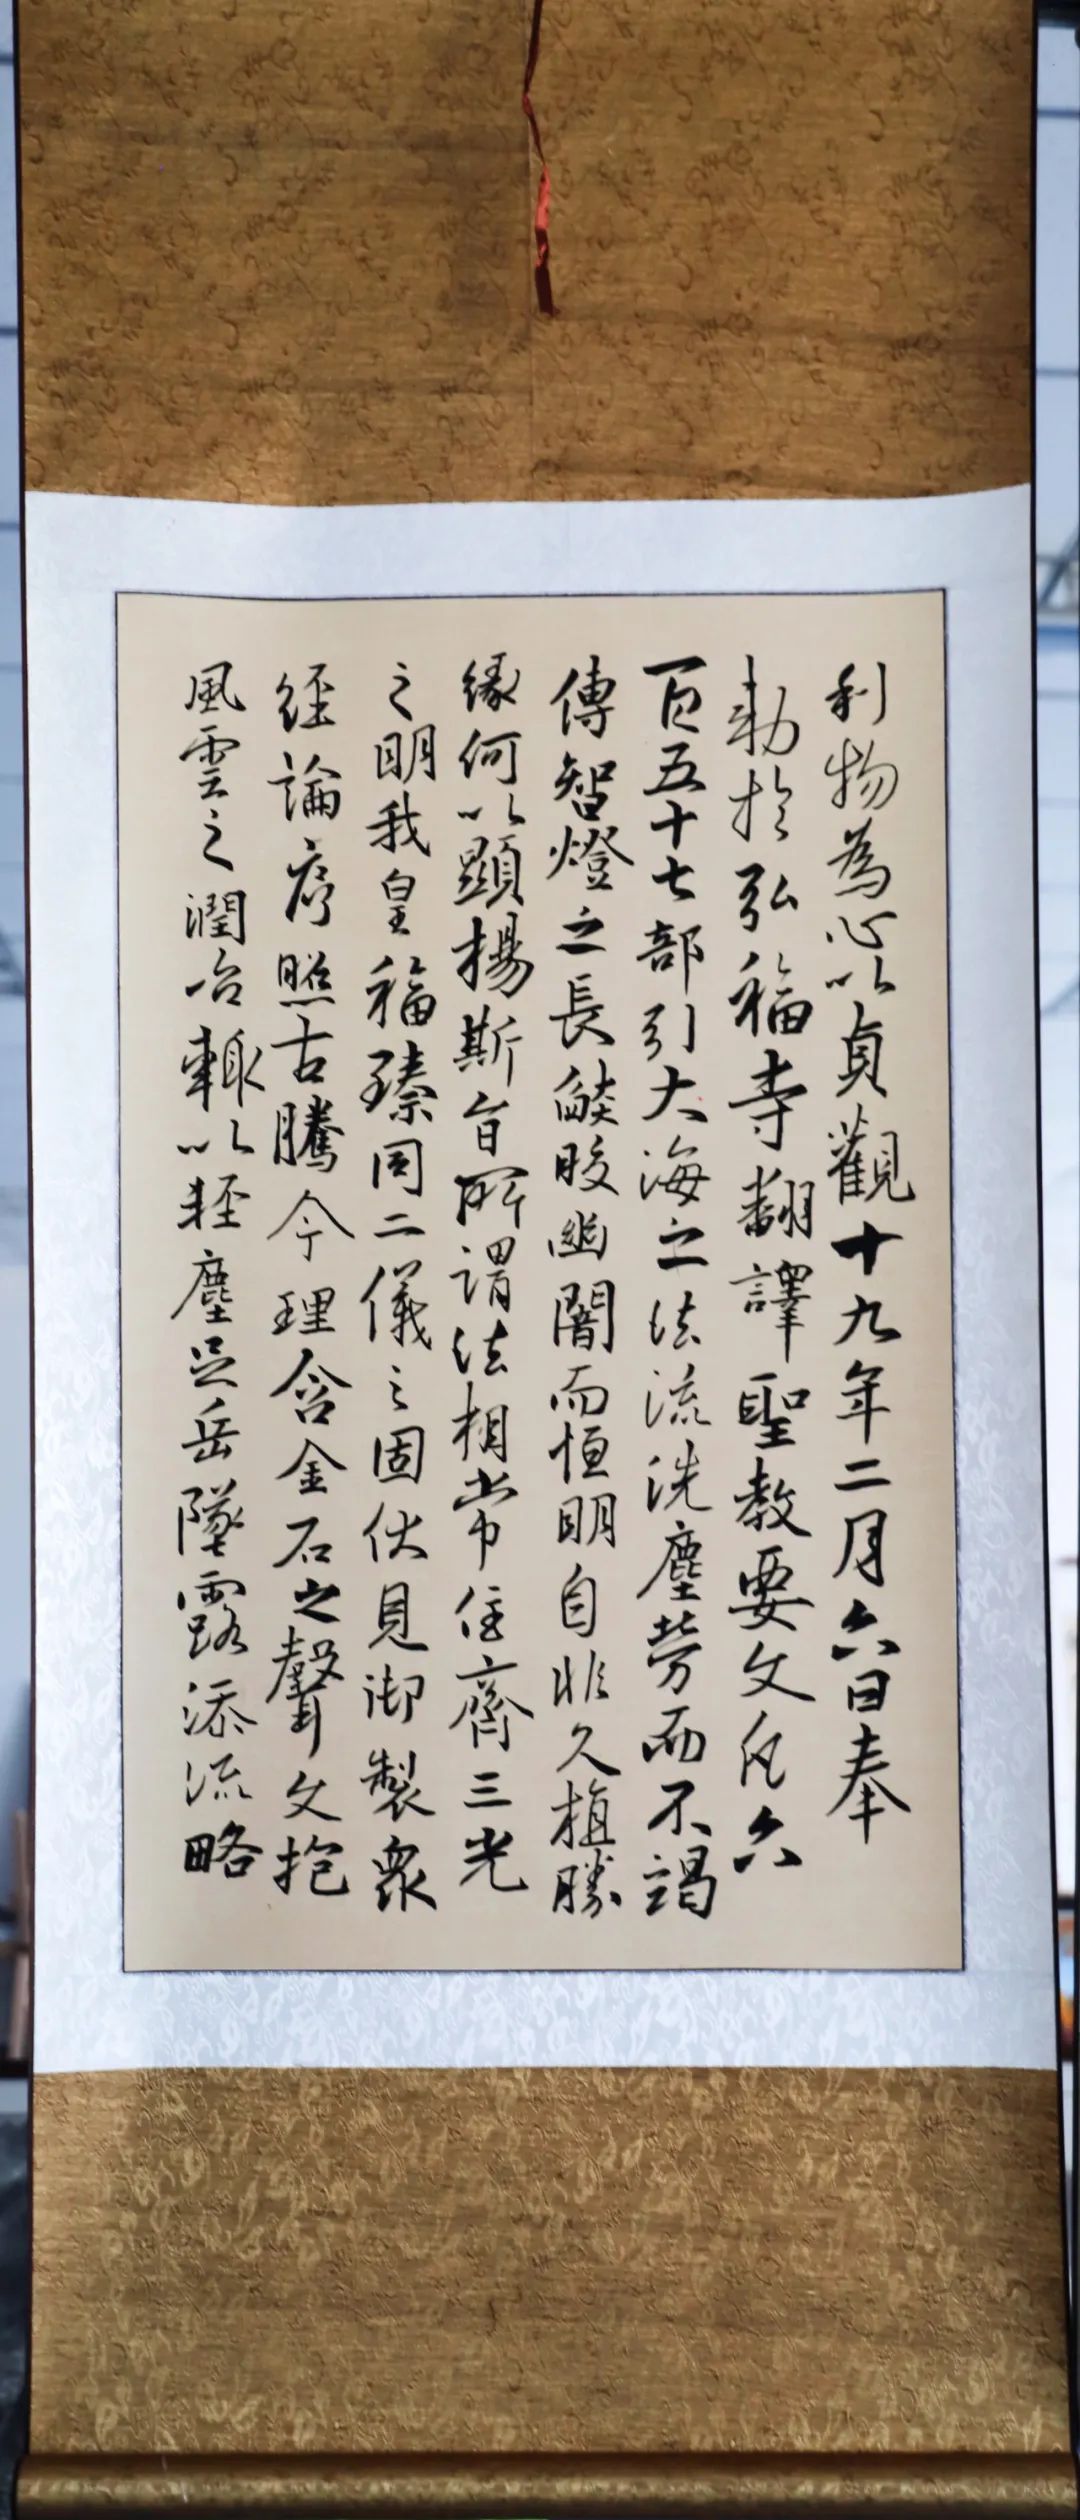 利物為心以貞觀十九年二月六日奉
勅於弘福寺翻譯聖教要文凡六
百五十七部引大海之法流洗塵勞而不竭
傳智燈之長燄皎幽闇而恒明自非久植勝
緣何以顯揚斯旨所謂法相常住齊三光
之明我皇福臻同二儀之固伏見御製衆
經論序照古騰今理含金石之聲文抱
風雲之潤治輒以輕塵足岳墜露添流略